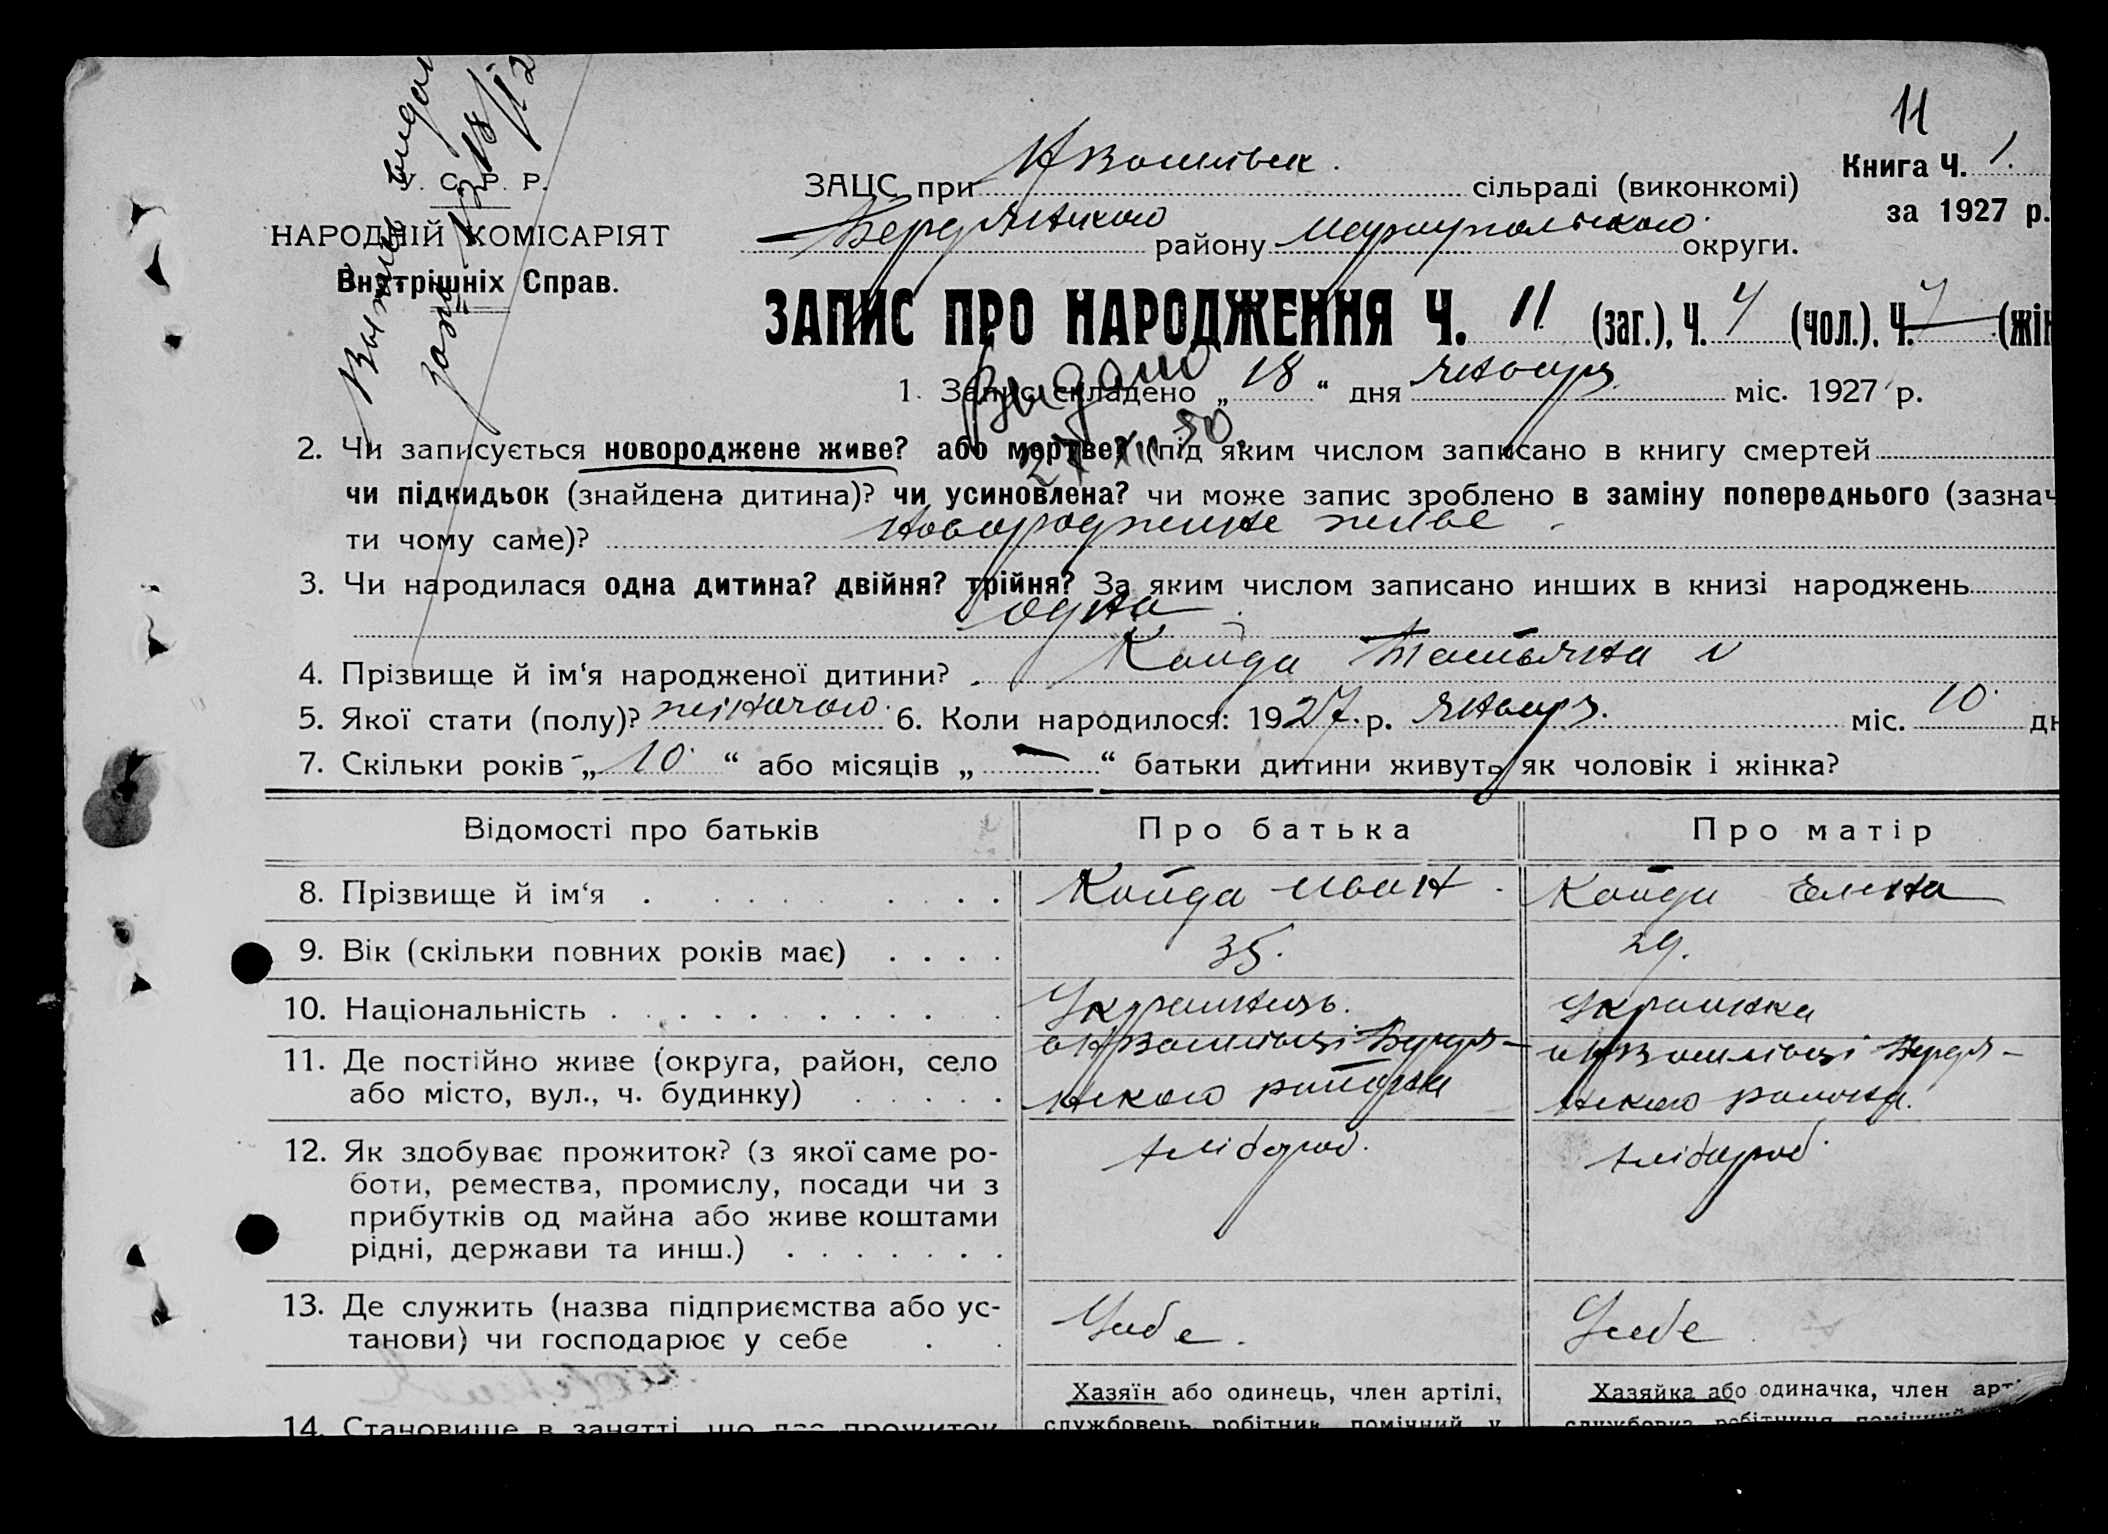 11
Книга Ч. 1.
за 1927 р.
У. С. Р. Р.
НАРОДНІЙ КОМІСАРІЯТ
Внутрішніх Справ.
ЗАЦС при сільраді (виконкомі)
району Мариупольского округи.
ЗАПИС ПРО НАРОДЖЕННЯ Ч. 11 (заг.), Ч. (чол.). Ч. (жін
Видано
1. Запис складено „ 18 “ дня января міс. 1927 р.
2. Чи записується новороджене живе? або мертве? (під яким числом записано в книгу смертей
чи підкидьок (знайдена дитина)? чи усиновлена? чи може запис зроблено в заміну попереднього (зазнач
ти чому саме)? новорожденне живе
3. Чи народилася одна дитина? двійня? трійня? За яким числом записано инших в книзі народжень
одна
4. Прізвище й ім‘я народженої дитини? Койда Татьяна
5. Якої стати (полу)? жіночого. 6. Коли народилося: 1927. р. января. міс. 10 дн
7. Скільки років „ 10 “ або місяців „ — “ батьки дитини живуть як чоловік і жінка?
Відомості про батьків Про батька Про матір
8. Прізвище й ім‘я Койда Иван Койда Елена
9. Вік (скільки повних років має) 35. 29.
10. Національність Украинець. Украинка
11. Де постійно живе (округа, район, село
або місто, вул., ч. будинку) нского района нского района.
12. Як здобуває прожиток? (з якої саме ро-
боти, ремества, промислу, посади чи з
прибутків од майна або живе коштами
рідні, держави та инш.) хлібороб. хлібороб
13. Де служить (назва підприємства або ус-
танови) чи господарює у себе У себе. У себе
Хазяїн або одинець, член артілі, Хазяйка або одиначка, член арті
14. Становище в занятті, що дає прожиток службовець, робітник, помічний у службовка, робітниця, помічний